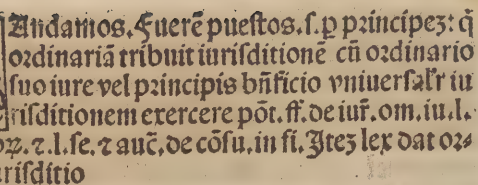 Andamos. Fuerẽ puestos. s. ꝑ principeʒ: q̃
ordinariã tribuit iurisditionẽ cũ ordinario
suo iure vel principis bñficio vniuersalr̃ iu
risditionem exercere põt. ff. de iur̃. om. iu. l.
. ⁊. l. se. ⁊ auc̃. de cõsu. in fi. Iteʒ lex dat or⸗
urisditio